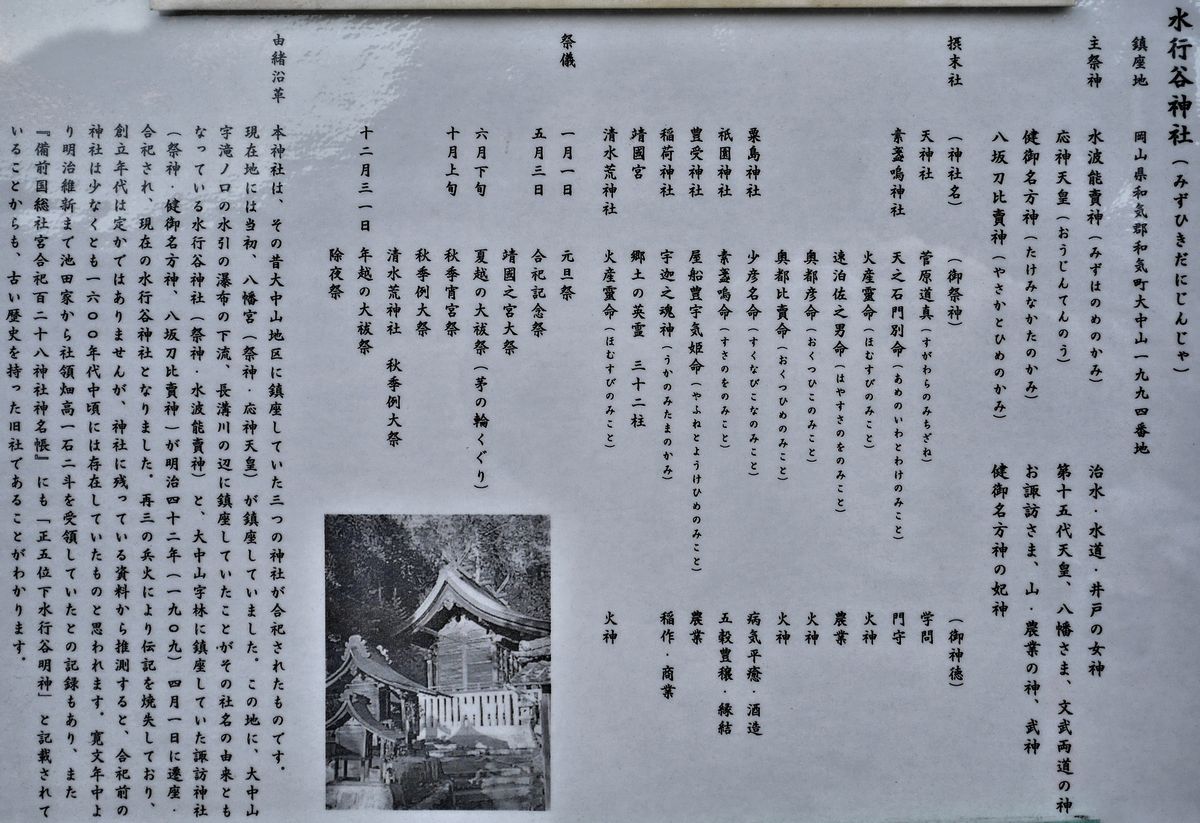 水行谷神社（みずひきだにじんじゃ）
鎮座地　岡山県和気郡和気町大中山一九九四番地
主祭神　水波能賣神（みずはのめのかみ）　治水・水道・井戸の女神
応神天皇（おうじんてんのう）　第十五代天皇、八幡さま、文武両道の神
健御名方神（たけみなかたのかみ）　お諏訪さま、山・農業の神、武神
八坂刀比賣神（やさかとひめのかみ）　健御名方神の妃神
摂末社　（神社名）　（御祭神）　（御神徳）
天神社　菅原道真（すがわらのみちざね）　学問
素盞鳴神社　天之石門別命（あめのいわとわけのみこと）　門守
火産霊命（ほむすびのみこと）　火神
速泊佐之男命（はやすさのをのみこと）　農業
奥都彦命（おくつひこのみこと）　火神
奥都比賣命（おくつひめのみこと）　火神
粟島神社　少彦名命（すくなびこなのみこと）　病気平癒・酒造
祇園神社　素盞鳴命（すさのをのみこと）　五穀豊穣・縁結
豊受神社　屋船豊宇気姫命（やふねとようけひめのみこと）　農業
稲荷神社　宇迦之魂神（うかのみたまのかみ）　稲作・商業
靖國宮　郷土の英霊　三十二柱
清水荒神社　火産霊命（ほむすびのみこと）　火神
祭儀　一月一日　元旦祭
五月三日　合祀記念祭
靖國之宮大祭
六月下旬　夏越の大祓祭（茅の輪くぐり）
十月上旬　秋季宵宮祭
秋季例大祭
清水荒神社　秋季例大祭
十二月三一日　年越の大祓祭
除夜祭
由緒沿革　本神社は、その昔大中山地区に鎮座していた三つの神社が合祀されたものです。
現在地には当初、八幡宮（祭神・応神天皇）が鎮座していました。この地に、大中山
字滝ノ口の水引の瀑布の下流、長溝川の辺に鎮座していたことがその社名の由来とも
なっている水行谷神社（祭神・水波能賣神）と、大中山字林に鎮座していた諏訪神社
（祭神・健御名方神、八坂刀比賣神）が明治四十二年（一九〇九）四月一日に遷座・
合祀され、現在の水行谷神社となりました。再三の兵火により伝記を焼失しており、
創立年代は定かではありませんが、神社に残っている資料から推測すると、合祀前の
神社は少なくとも一六〇〇年代中頃には存在していたものと思われます。寛文年中よ
り明治維新まで池田家から社領畑高一石二斗を受領していたとの記録もあり、また
『備前国総社宮合祀百二十八神社神名帳』にも「正五位下水行谷明神」と記載されて
いることからも、古い歴史を持った旧社であることがわかります。